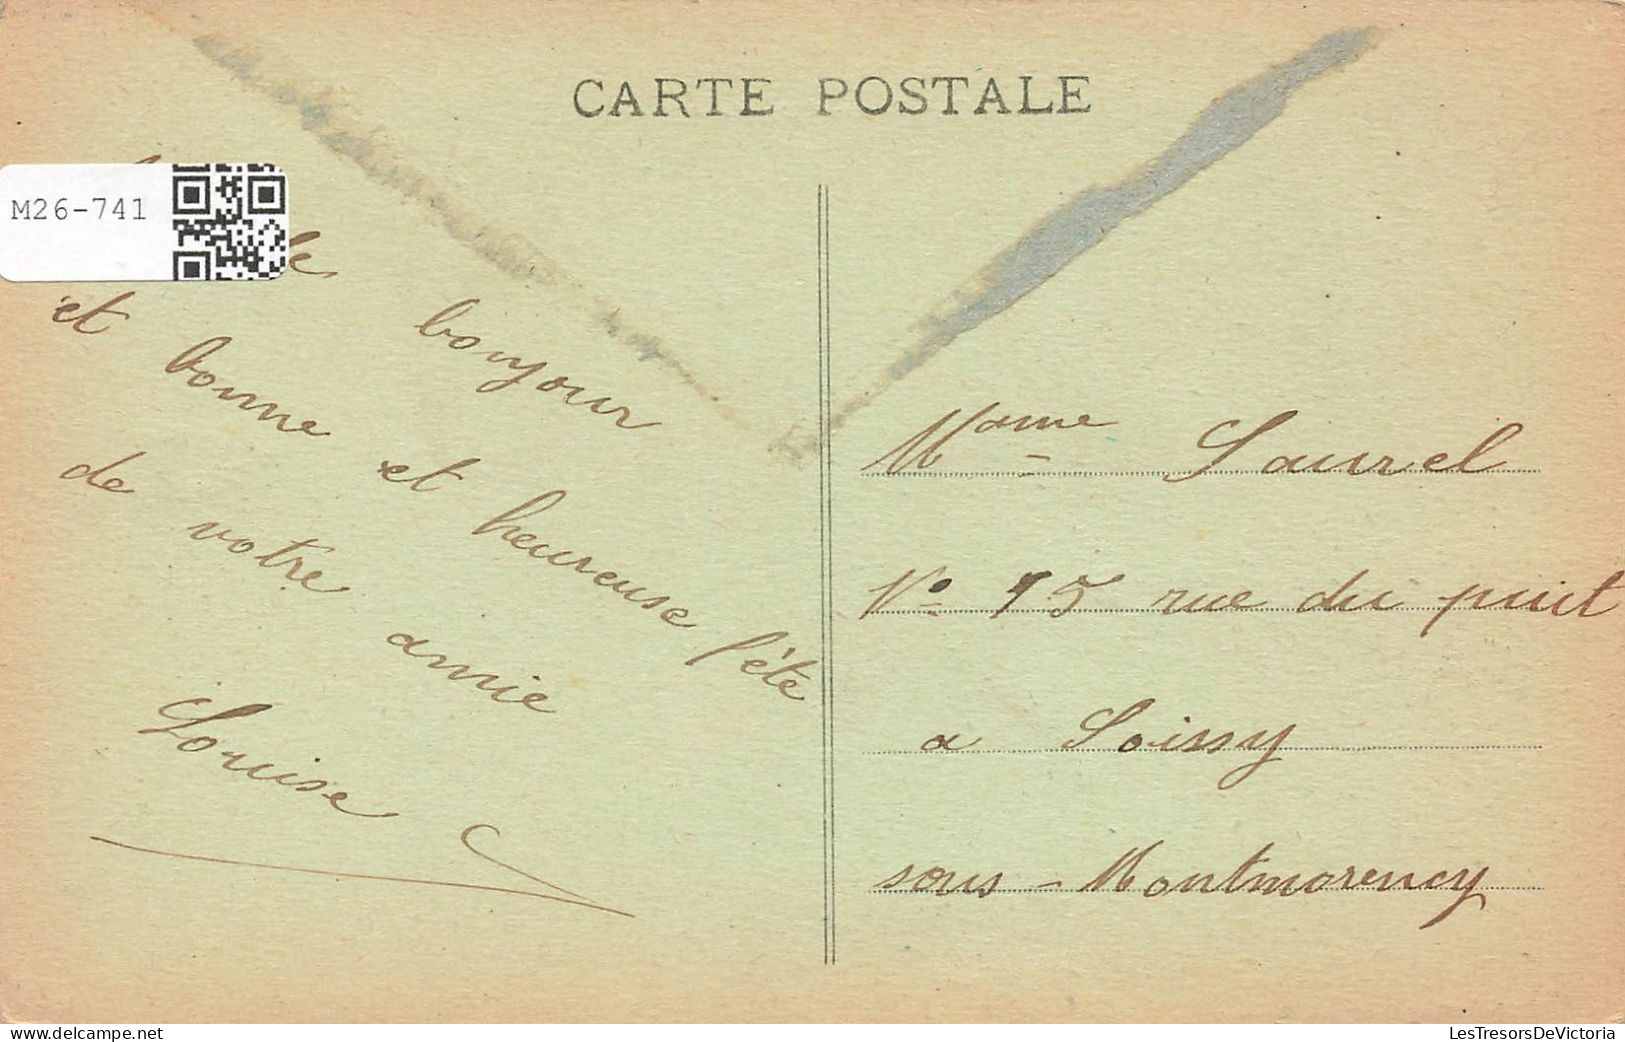 CARTE POSTALE
M26-741
le bonjour
et bonne et heureuse fête
de votre amie
Louise
Mame Laurel
No 15 rue du puit
a Soissy
sous - Montmorency
www.delcampe.net
LesTresorsDeVictoria